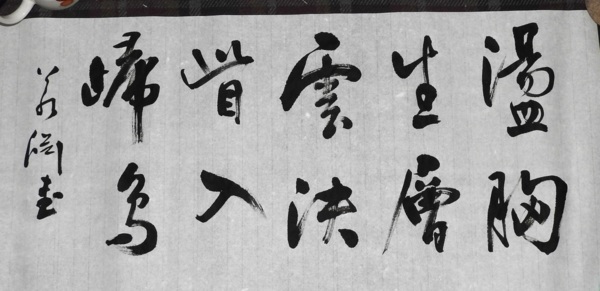 盪胸
生層
雲決
眥入
歸鳥
若 書